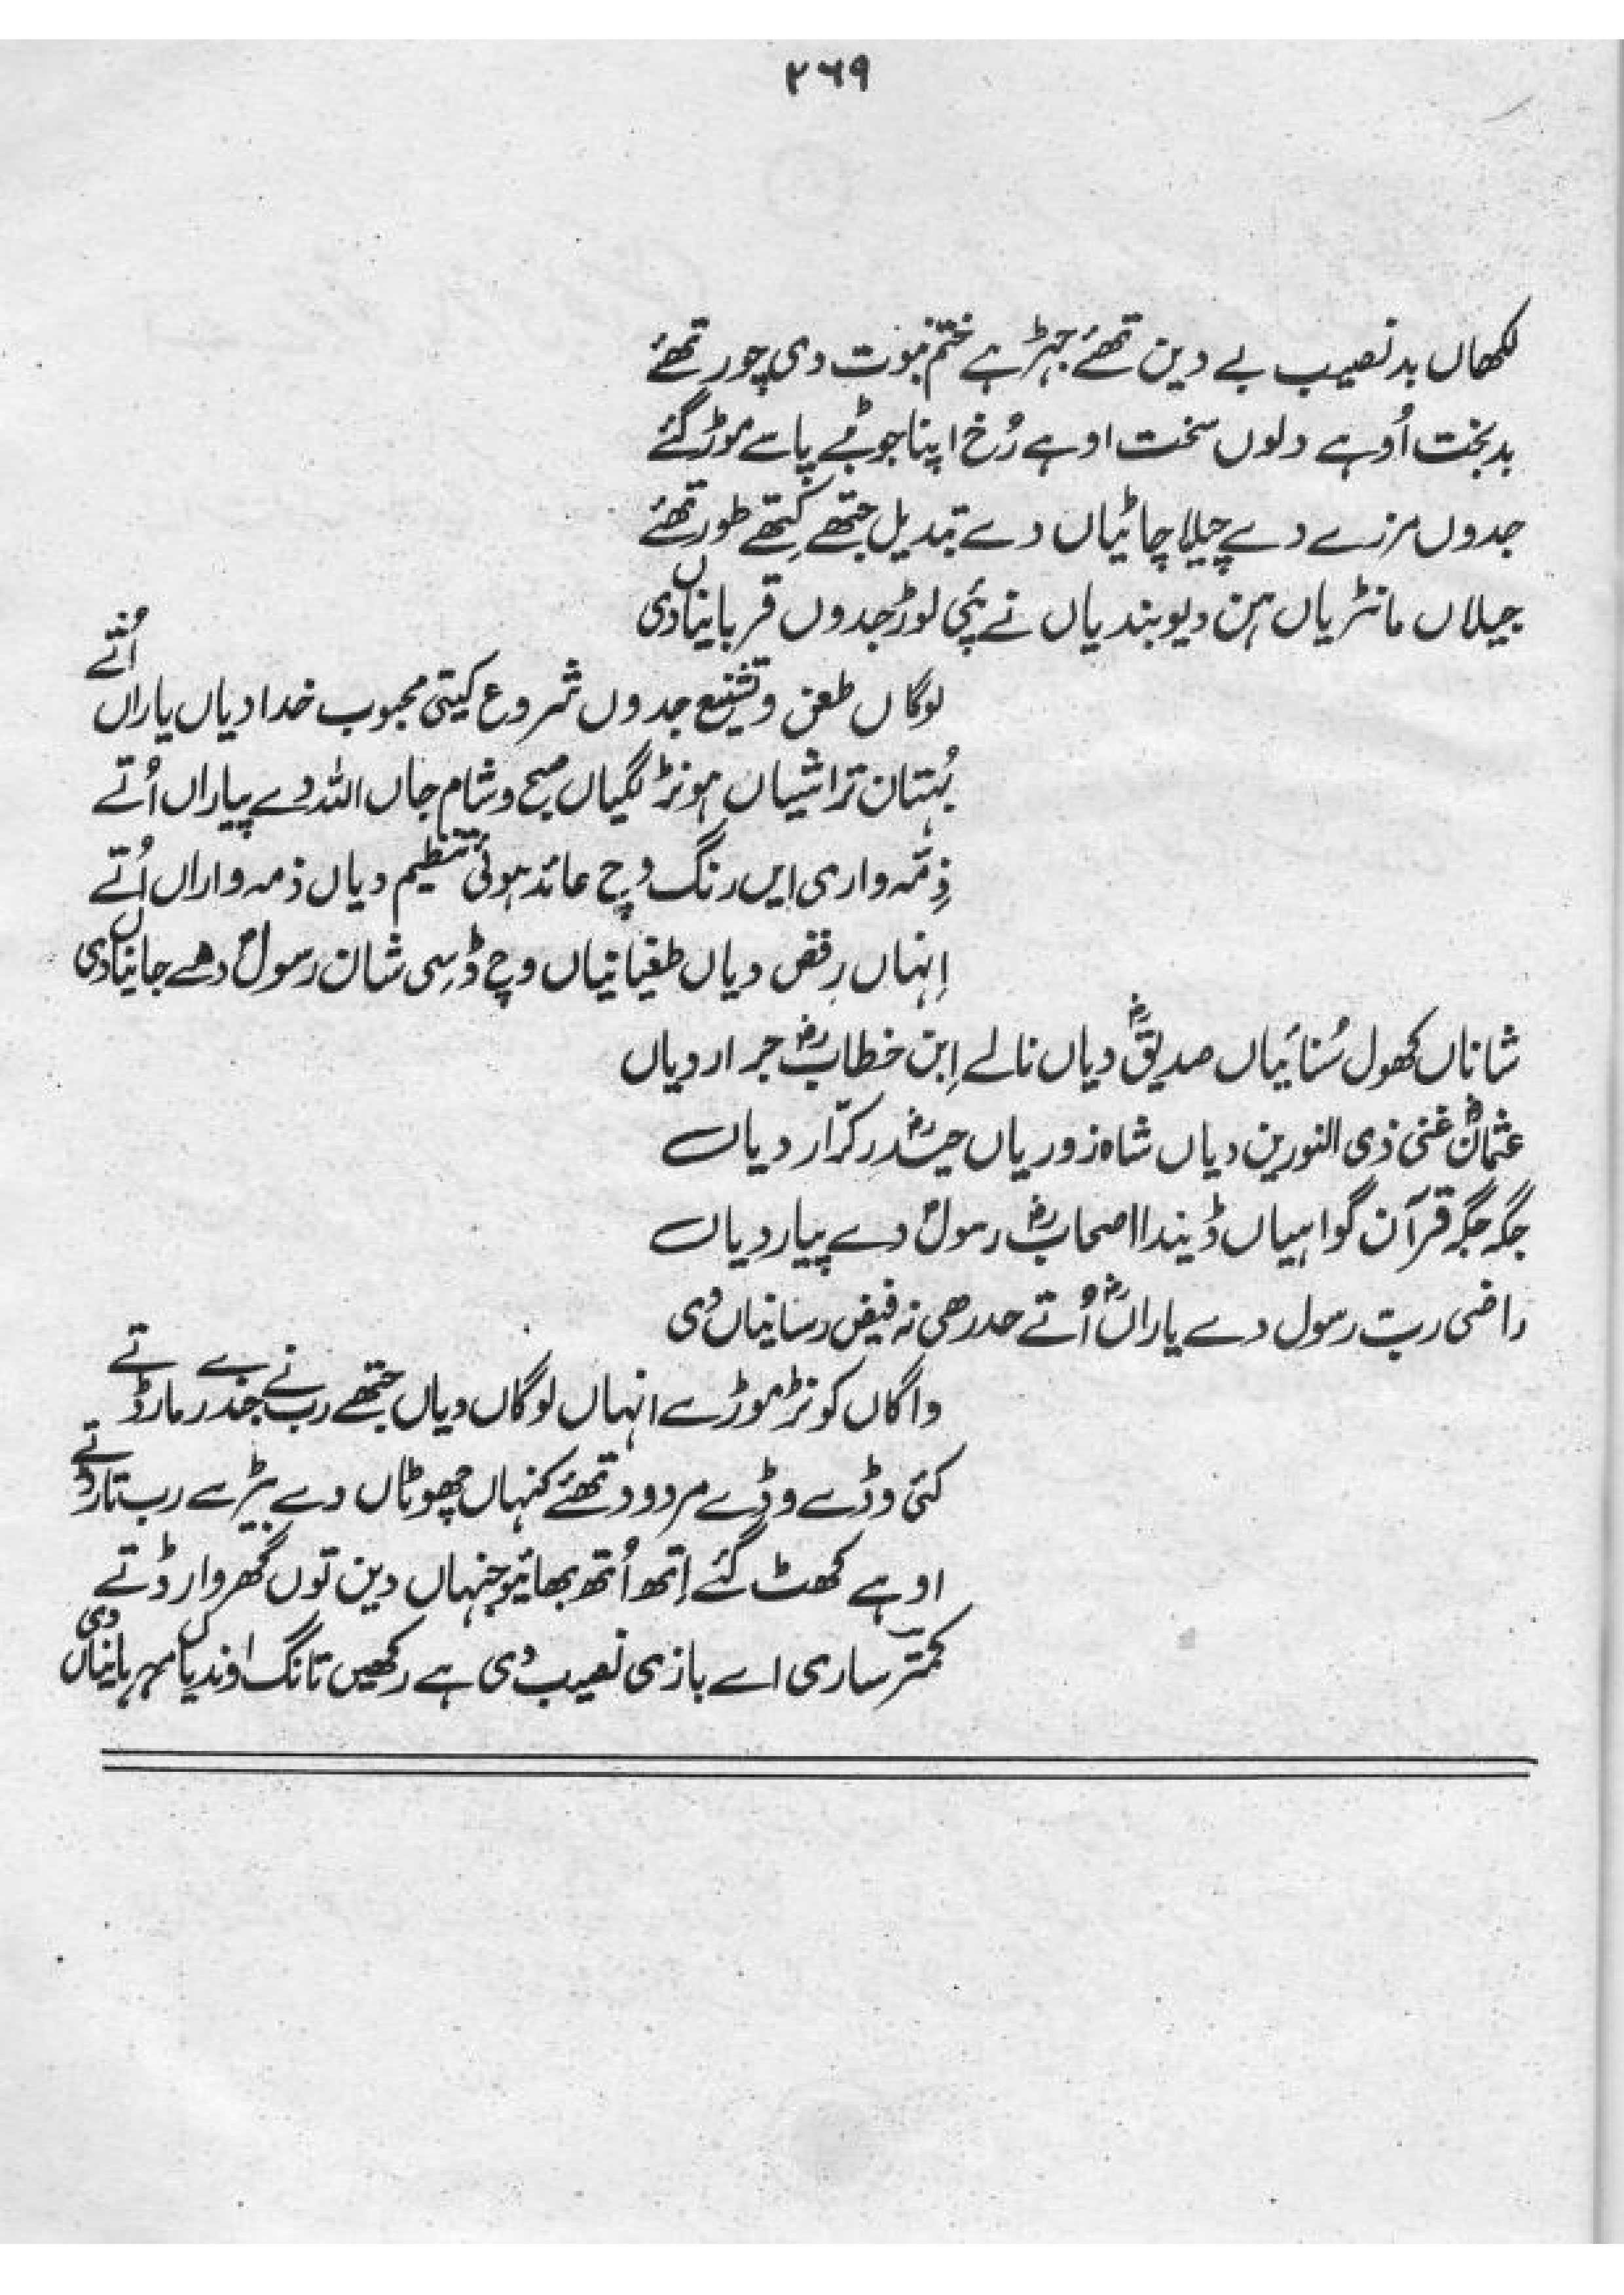 ۲۶۹
لکھاں بد نصیب بے دین تھئے جہڑے ختم نبوت دی چور تھئے
بد بخت اُوہے دلوں سخت اوہے رُخ اپنا جو بُٹے پاسے موڑ گئے
جدوں مرزے دے چیلا چانٹیاں دے تبدیل جتھے کِتھے طور تھئے
جیلاں مانٹریاں ہن دیوبندیاں نے پئی لوڑ جدوں قربانیاں دی
لوگاں طعن و تشنیع جدوں شروع کیتی محبوب خدا دیاں یاراں اُتّے
بُہتان تراشیاں ہونڑ لگیاں صبح و شام جاں اللہ دے پیاراں اُتے
ذِمّہ واری ایں رنگ وچ عائد ہوئی تنظیم دیاں ذمہ واراں اُتے
اِنہاں رفض دیاں طغیانیاں وچ ڈسِی شان رسولؐ دھے جانیاں دی
شاناں کھول سُنائیاں صدیقؓ دیاں نالے اِبن خطابؓ جرار دیاں
عثمانؓ غنی ذی النورین دیاں شاہ زوریاں حیدرؓ کرّار دیاں
جگہ جگہ قرآن گواہیاں ڈیندا اصحابؓ رسولؐ دے پیار دیاں
راضی رب رسول دے یاراںؓ اُتے حد رھی نہ فیض رسانیاں دی
واگاں کونڑ موڑے انہاں لوگاں دیاں جتھے رب نے جندرے مار ڈتے
کئی وڈے وڈے مردود تھئے کنہاں چھوٹاں دے بیڑے رب تار ڈتے
اوہے کھٹ گئے اِتھ اُتھ بھائیو جنہاں دین توں گھر وار ڈتے
کمتر ساری اے بازی نصیب دی ہے رکھیں تانگ اوندیاں مہربانیاں دی